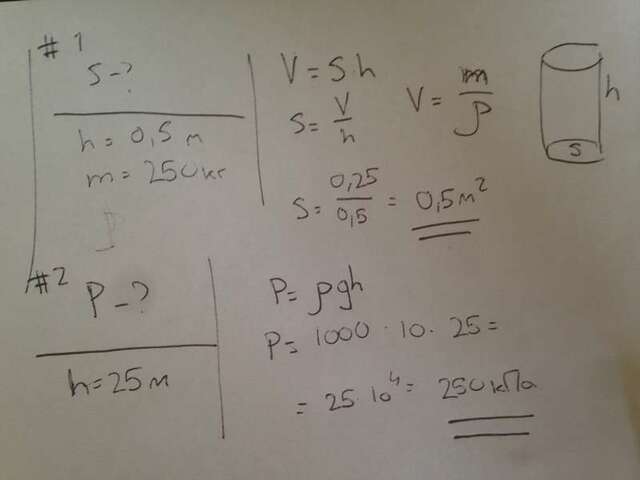 #1
S-?
h = 0,5 м
m = 250кг
V = Sh   V = m/ρ
S = V/h
S = 0,25/0,5 = 0,5 м²
h
S
#2
P-?
h = 25 м
P = ρgh
P = 1000 · 10 · 25 =
= 25·10⁴ = 250 кПа